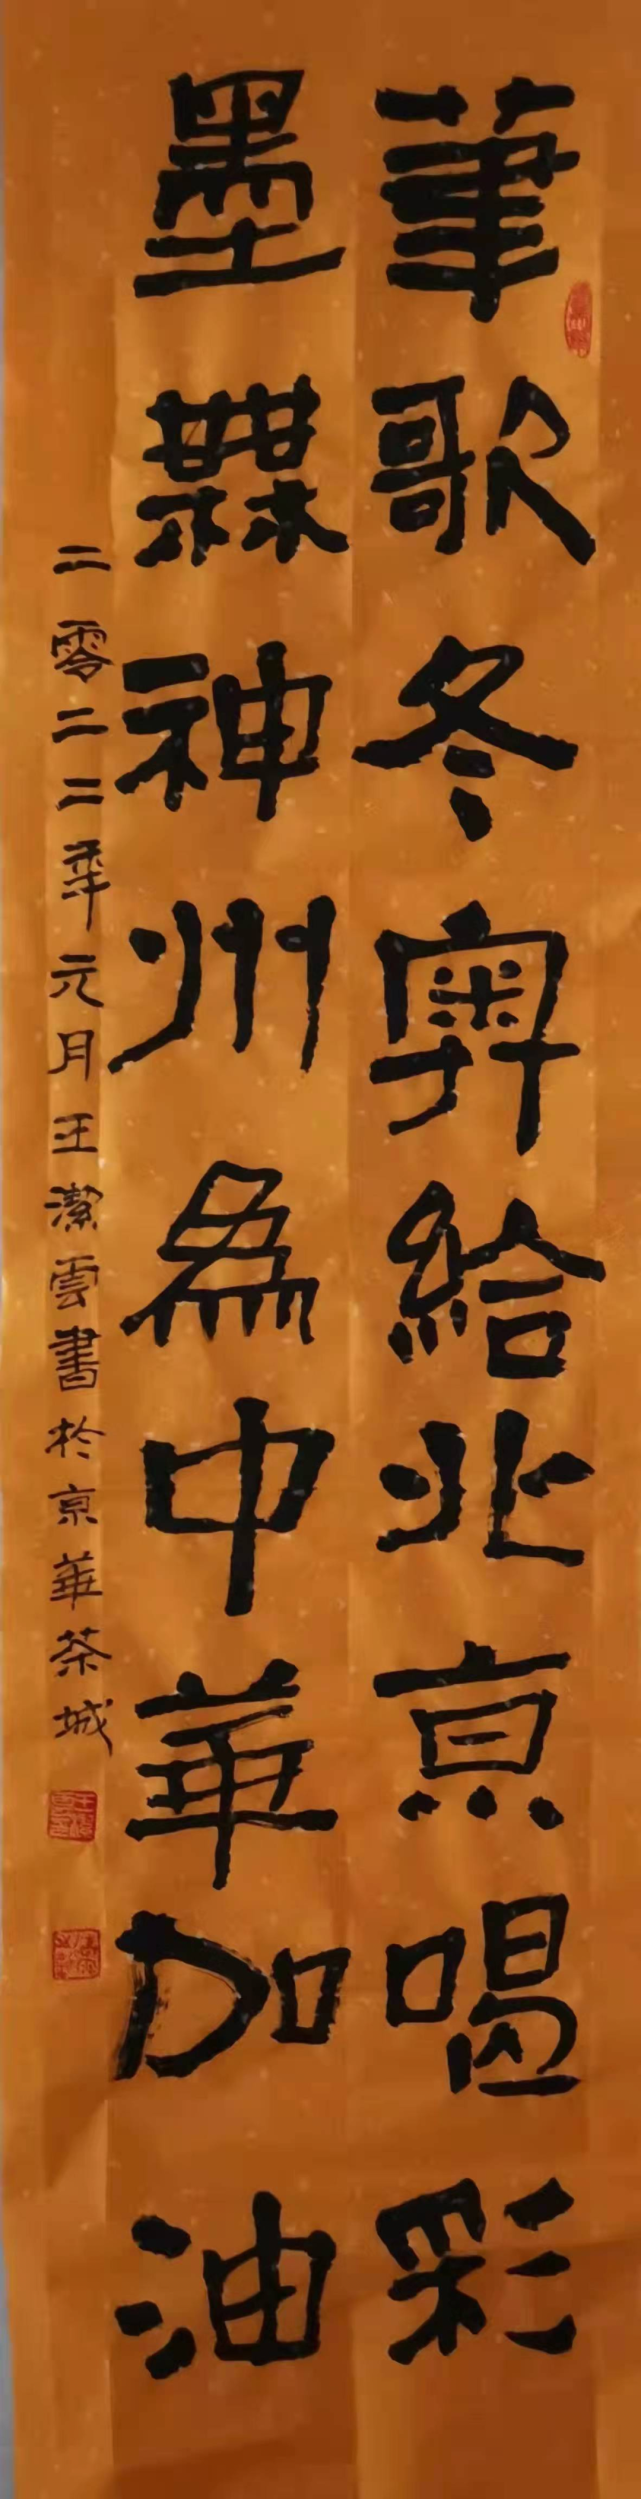 筆歌冬奥給北京喝彩
墨舞神州為中華加油
二零二二年元月王潔雲書於京華茶城